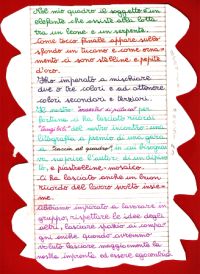 Nel mio quadro il soggetto è un
elefante che assiste alla lotta
tra un leone e un serpente.
Come tocco finale appare sullo
sfondo un vulcano e come orna-
mento ci sono stelline e pepite
d'oro.
Ho imparato a mischiare
due o tre colori e ad ottenere
colori secondari e terziari.
Il nostro
fortuna ci ha lasciato ricordi
"tangibili" del nostro incontro: una
litografia, a premio di una gara
a "Caccia al quadro" in cui bisogna-
va sapere l'autore di un dipin-
to, e piastrelline-mosaico.
Ci ha lasciato anche un buon
ricordo del lavoro svolto insie-
me.
Abbiamo imparato a lavorare in
gruppo, rispettare le idee degli
altri, lasciare spazio ai compa-
gni anche quando avremmo
voluto lasciare maggiormente la
nostra impronta ed essere